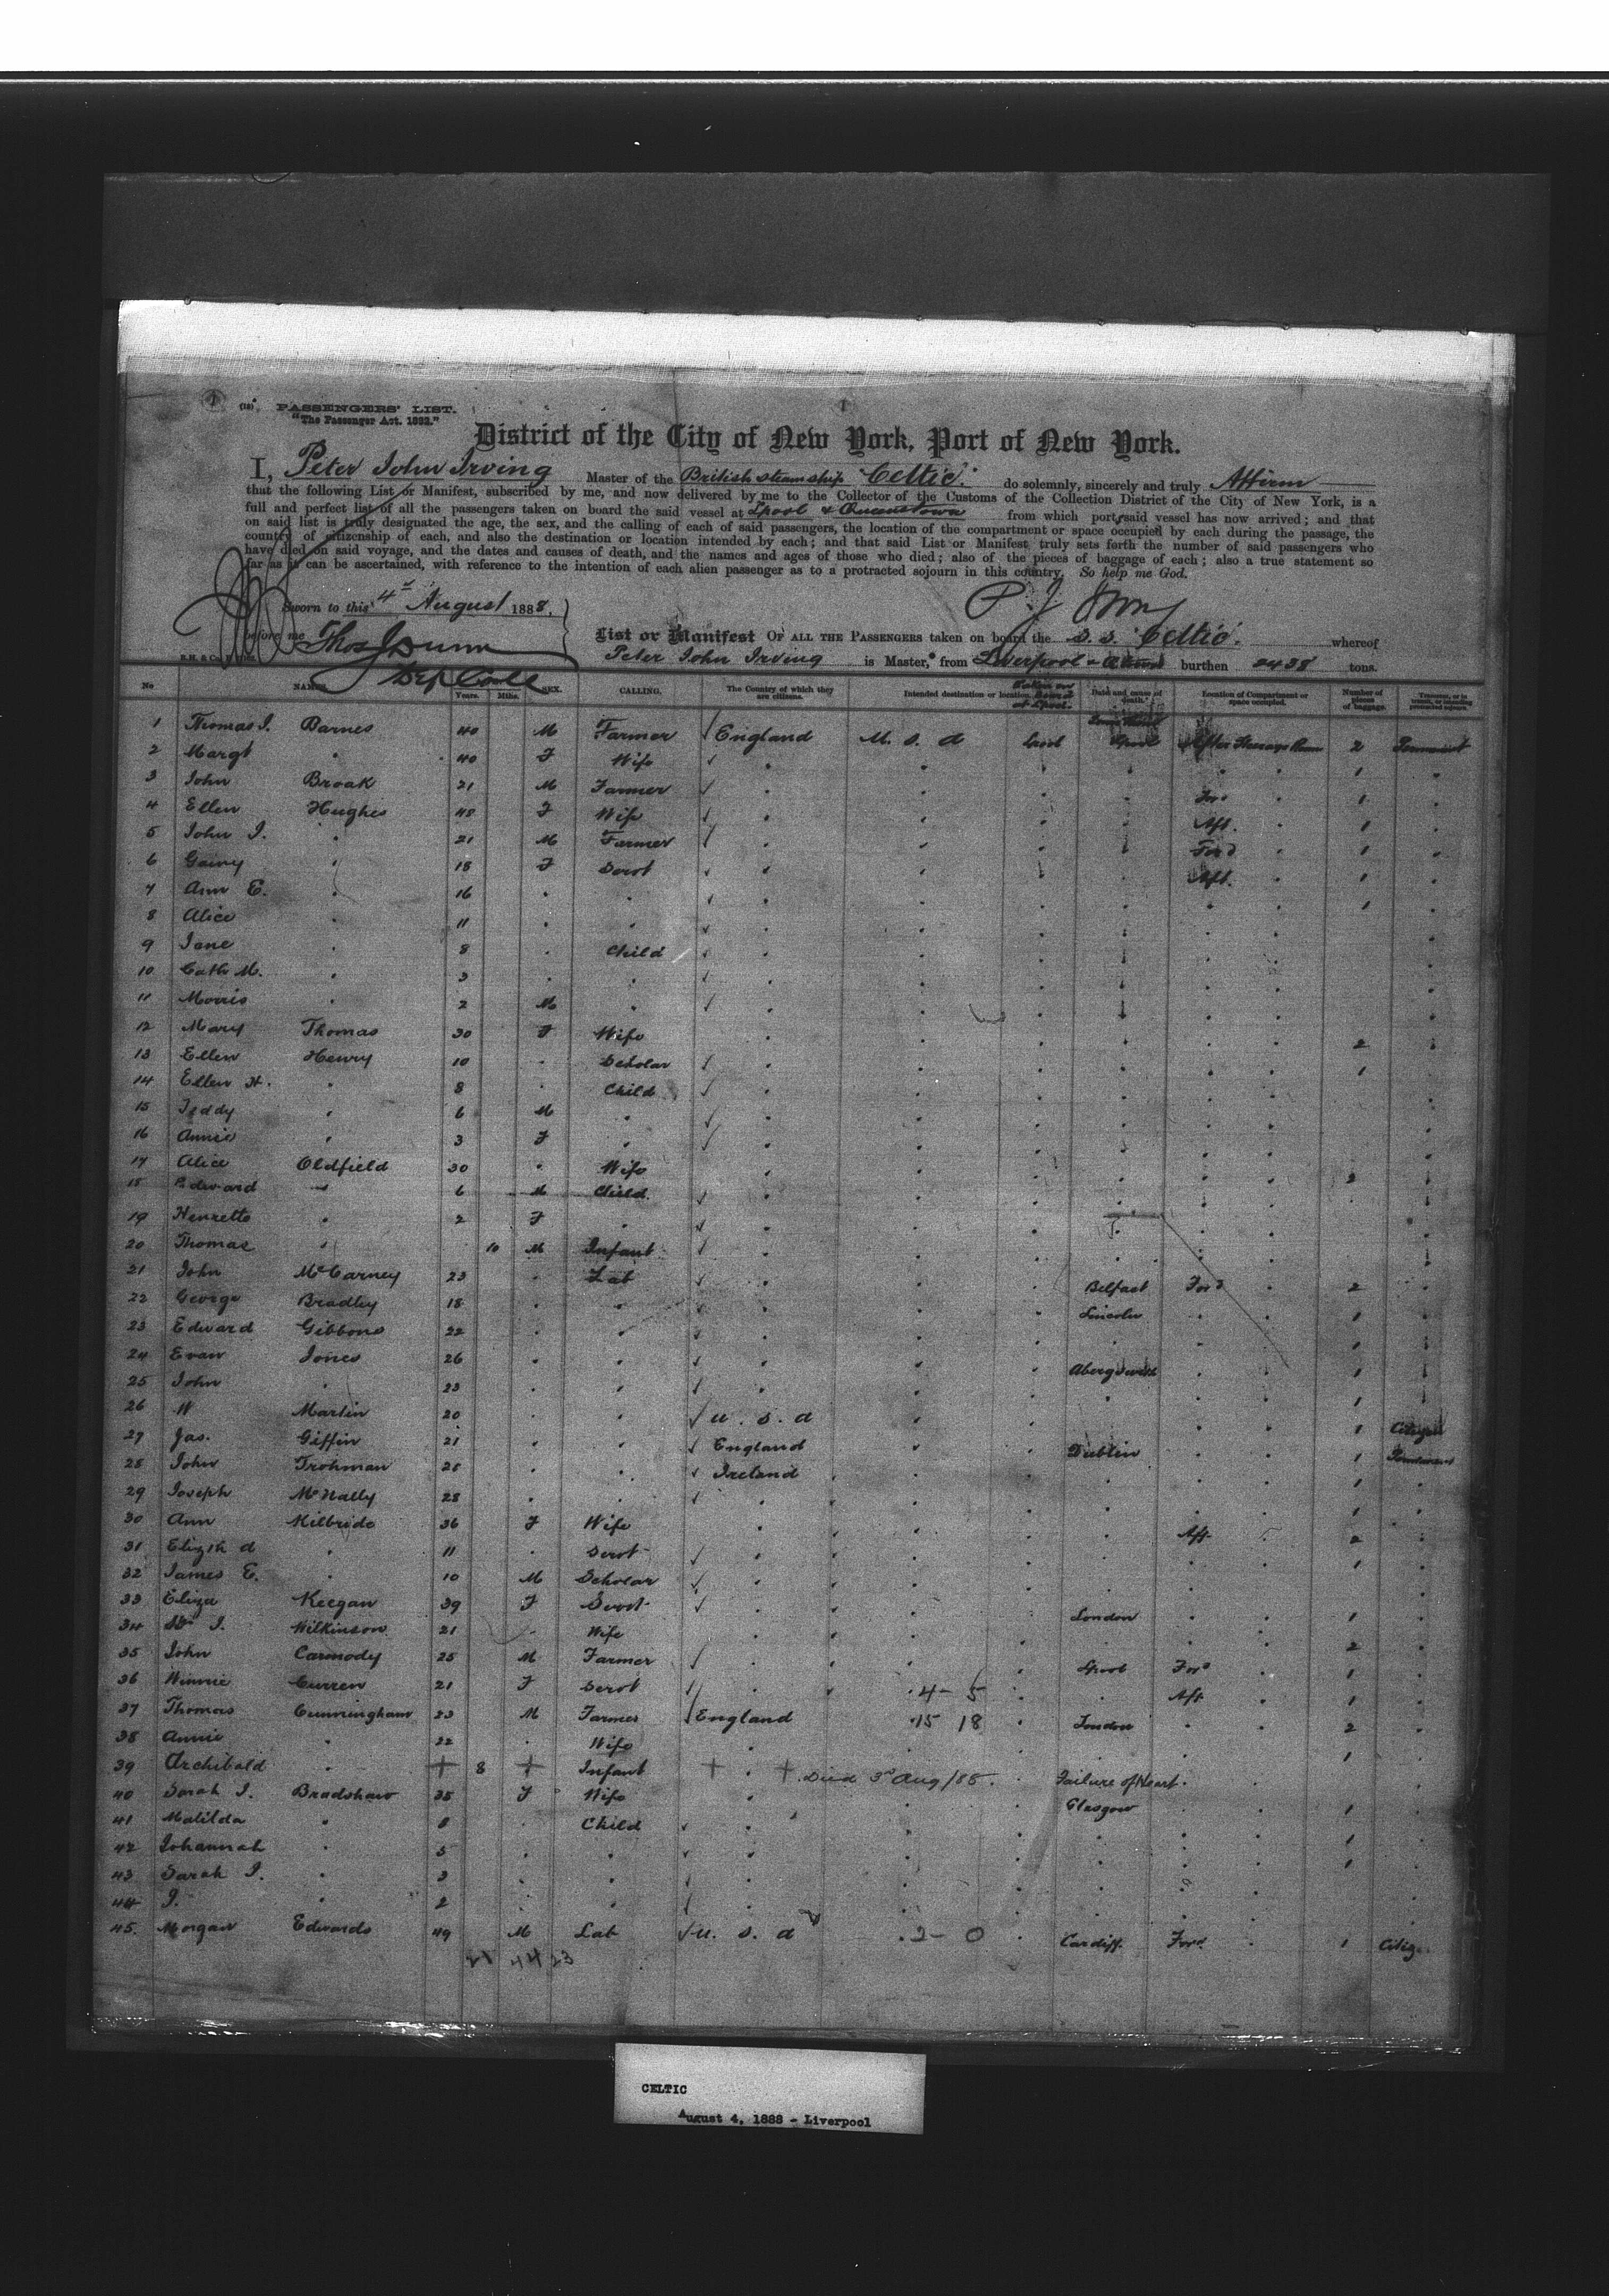 (18) PASSENGERS' LIST.
"The Passenger Act. 1882."
District of the City of New York, Port of New York.
I, Peter John Irving Master of the British steamship "Celtic" do solemnly, sincerely and truly Affirm
that the following List or Manifest, subscribed by me, and now delivered by me to the Collector of the Customs of the Collection District of the City of New York, is a
full and perfect list of all the passengers taken on board the said vessel at Lpool & Queenstown from which port said vessel has now arrived; and that
on said list is truly designated the age, the sex, and the calling of each of said passengers, the location of the compartment or space occupied by each during the passage, the
country of citizenship of each, and also the destination or location intended by each; and that said List or Manifest truly sets forth the number of said passengers who
have died on said voyage, and the dates and causes of death, and the names and ages of those who died; also of the pieces of baggage of each; also a true statement so
far as it can be ascertained, with reference to the intention of each alien passenger as to a protracted sojourn in this country. So help me God.
Sworn to this 4th August 1888. P J Irving
before me Thos J Dunn
List or Manifest OF ALL THE PASSENGERS taken on board the S.S. Celtic. whereof
Peter John Irving is Master, from Liverpool & burthen 2438 tons.
No NAMES. Years. Mths. SEX. CALLING. The Country of which they are citizens. Intended destination or location. Taken on board at Lpool. Date and cause of death. Location of Compartment or space occupied. Number of pieces of baggage.
1 Thomas J. Barnes 40 M Farmer England U. S. A Lpool Lpool After Steerage 2 Permanent
2 Margt " 40 F Wife " " 1
3 John Broak 21 M Farmer " " Ford 1
4 Ellen Hughes 48 F Wife " " Aft. 1
5 John J. " 21 M Farmer " " Ford 1
6 " 18 F Servt " " Aft. 1
7 Ann E. " 16 " " " " 1
8 Alice " 11 " " " "
9 Jane " 8 " Child " "
10 Cath M. " 3 " " " "
11 Morris " 2 M " " "
12 Mary Thomas 30 F Wife " " 2
13 Ellen Henry 10 " Scholar " " 1
14 Ellen H. " 8 " Child " "
15 Teddy " 6 M " " "
16 Annie " 3 F " " "
17 Alice Oldfield 30 " Wife " " 2
18 Edward " 6 M Child " "
19 Henretta " 2 F " " "
20 Thomas " 10 M Infant " "
21 John McCarney 23 " Lab " " Belfast Ford 2
22 George Bradley 18 " " " " Lincoln " 1
23 Edward Gibbons 22 " " " " " " 1
24 Evan Jones 26 " " " " " 1
25 John " 23 " " " " " " 1
26 W Martin 20 " " U. S. A " " 1 Citizen
27 Jas. Giffin 21 " " England " Dublin " 1 Permanent
28 John Trohman 25 " " Ireland " " " 1
29 Joseph McNally 28 " " " " " " 1
30 Ann Kilbride 36 F Wife " " " Aft 2
31 " 11 " Servt " " " " 1
32 James E. " 10 M Scholar " " " "
33 Eliza Keegan 39 F Servt " " London " 1
34 Wilkinson 21 " Wife " " " " 2
35 John Carmody 25 M Farmer " " Lpool Ford 1
36 Winnie Curren 21 F Servt " 4 - 5 " Aft 1
37 Thomas Cunningham 23 M Farmer England 15 18 London " 2
38 Annie " 22 " Wife " " " 1
39 Archibald " + 8 + Infant + " + Died 3d Aug/88. Failure of Heart.
40 Sarah J. Bradshaw 35 F Wife " " Glasgow " 1
41 Matilda " 8 " Child " " " " 1
42 Johannah " 5 " " " " " " 1
43 Sarah J. " 3 " " " " " "
44 J. " 2 " " " " " "
45. Morgan Edwards 49 M Lab U. S. A 2 - 0 Cardiff. Ford. 1 Citiz
21 44 23
CELTIC
August 4, 1888 - Liverpool